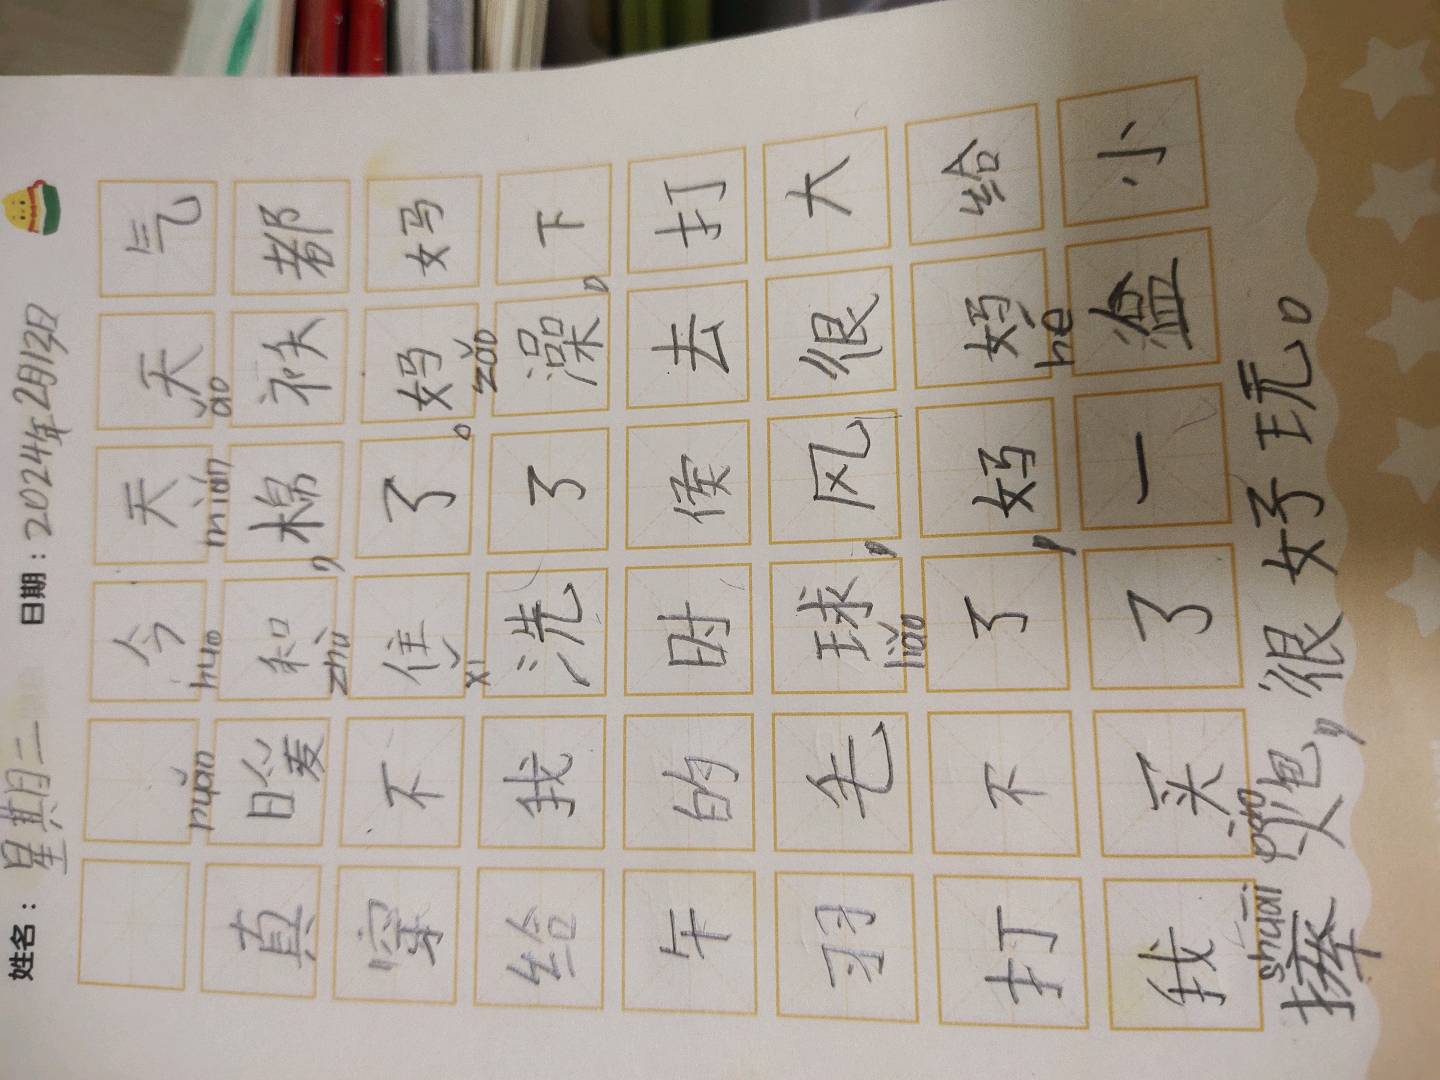 姓名：星期二 日期：2024年2月13日
今天天气
nuǎn huo mián ǎo
真暖和，棉袄都
zhù
穿不住了。妈妈
xǐ zǎo
给我洗了澡。下
午的时侯去打
羽毛球，风很大
liǎo
打不了，妈妈给
hé
我买了一盒小
shuāi pào
摔炮，很好玩。